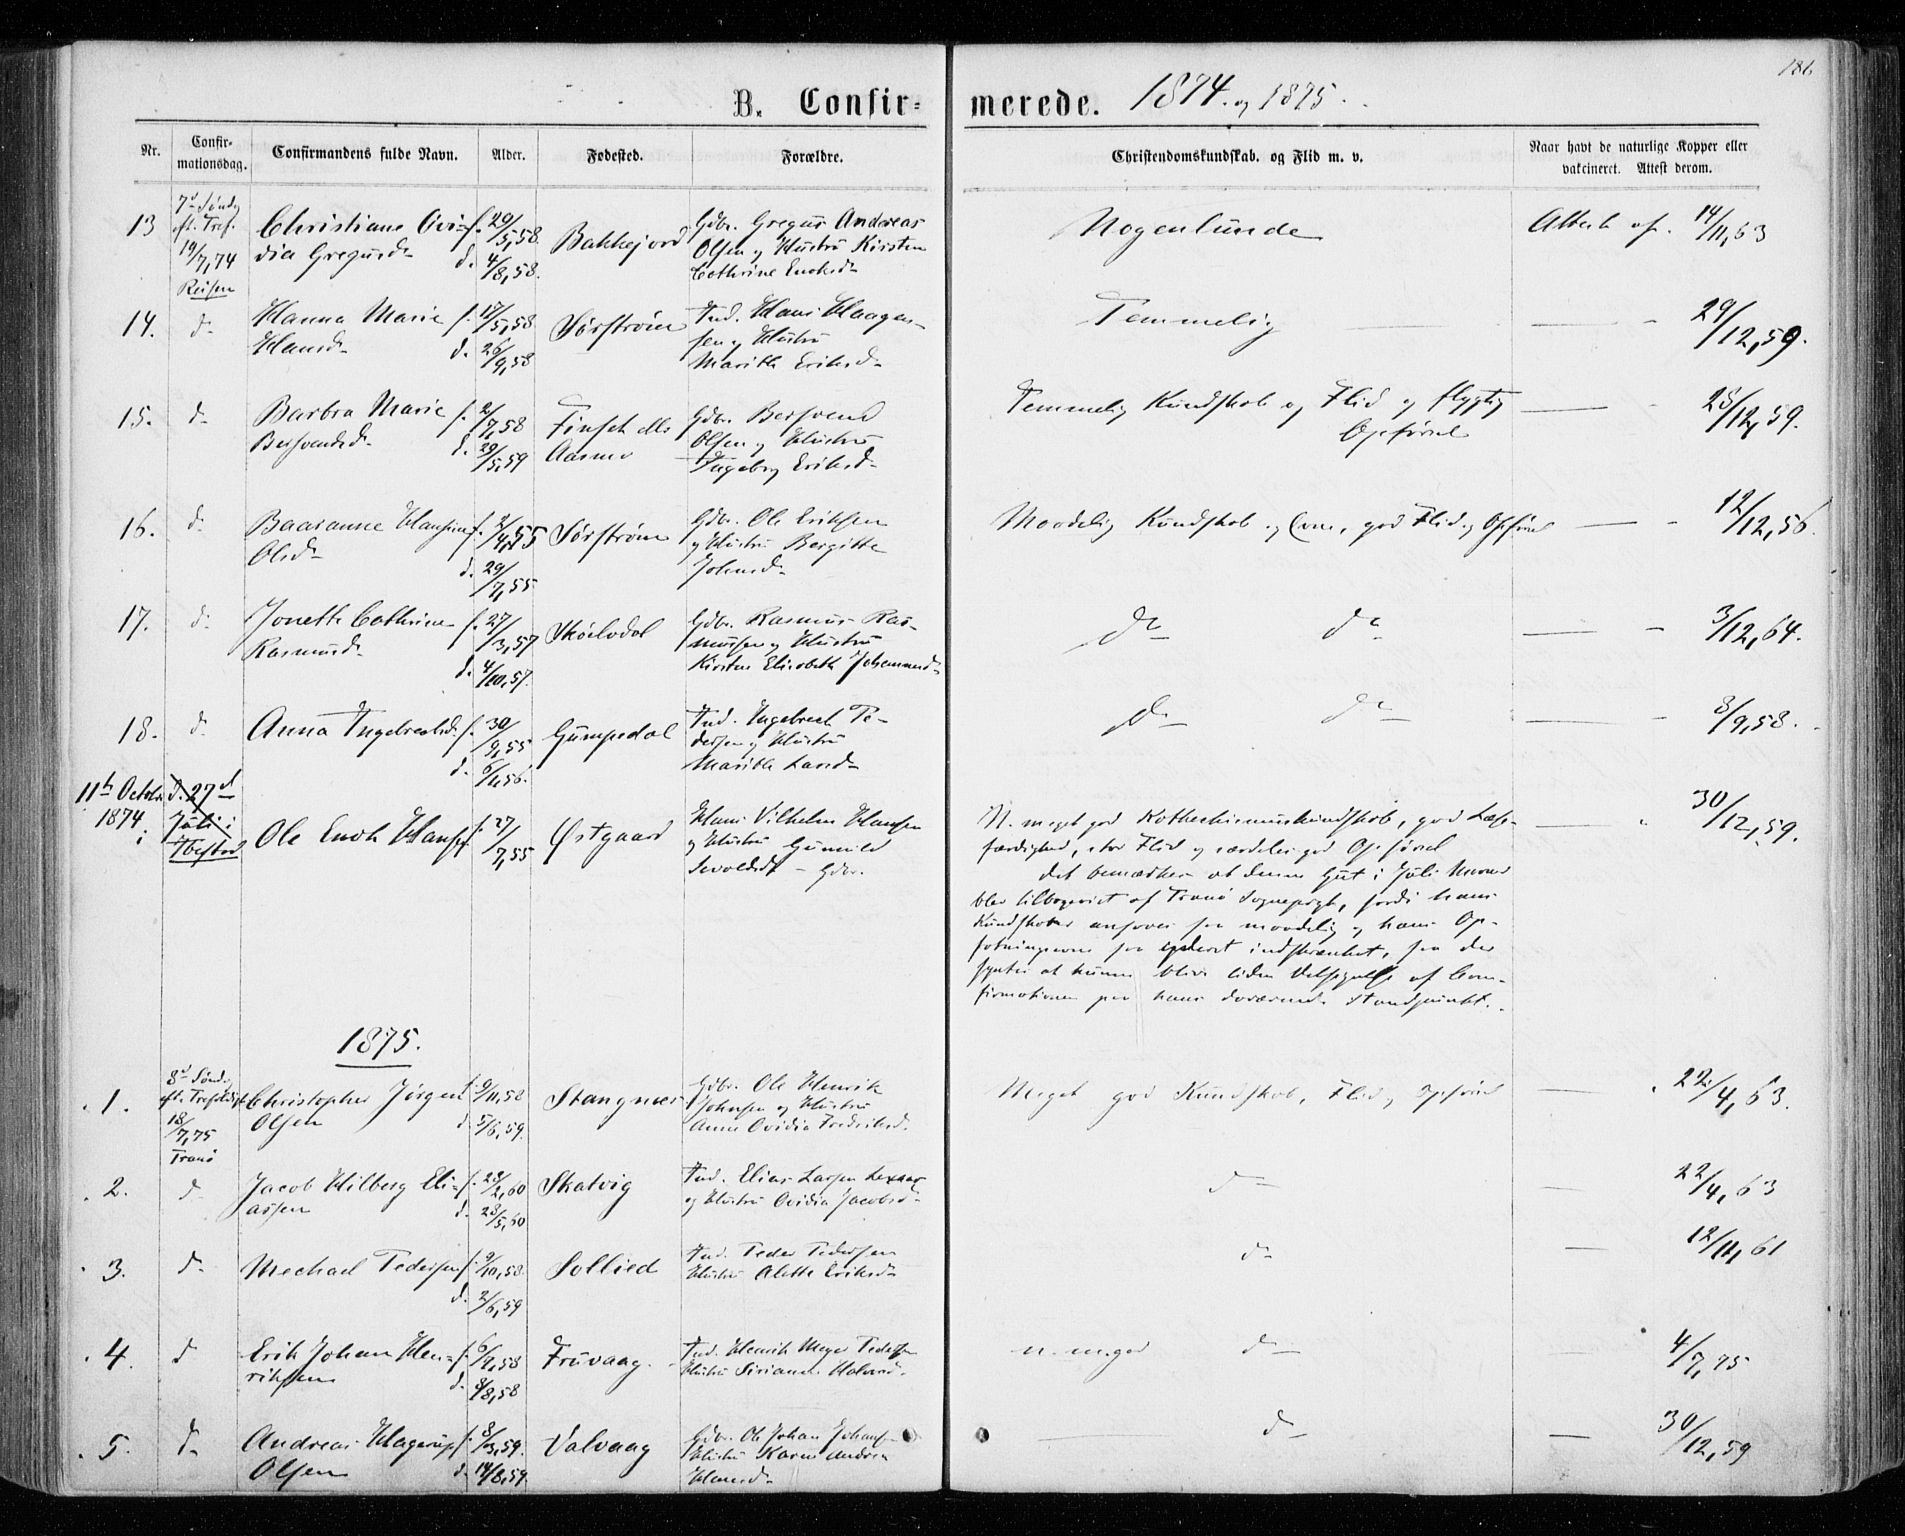 186
B. Confir=
merede. 1874. og 1875.
Nr.
Confir-
mationsdag.
Confirmandens fulde Navn.
Alder.
Fødested.
Forældre.
Christendomskundskab. og Flid m. v.
Naar havt de naturlige Kopper eller
vakcineret. Attest derom.
13
7d Sønd.
eft. Tref.
19/7,74
Reisen
Christiane Ovi-
dia Gregusd.
f. 29/5,58.
d. 4/8,58.
Bakkejord
Gdbr. Gregus Andreas
Olsen og Hustru Kirsten
Cathrine Enoksd.
Nogenlunde
Attest af. 14/11,63
14.
d.
Hanna Marie
Hansd.
f. 17/5,58.
d. 26/9,58
Sørstrøm
Ind. Hans Haagen-
sen og Hustru
Marith Eriksd.
Temmelig
29/12,59.
15.
d.
Barbra Marie
Bersvendsd.
f. 2/7,58
d. 29/5,59
Finset
Aasmo
Gdbr. Bersvend
Olsen og Hustru
Ingeborg Eriksd.
Temmelig Kundskab og Flid og flygtig
Opførsel
28/12,59.
16.
d.
Baaranne Hansine
Olsd.
f. 2/4,55
d. 29/7,55
Sørstrøm
Gdbr. Ole Eriksen
og Hustru Bergitte
Johnsd.
Maadelig Kundskab og Evne, god Flid og Opførsel
12/12,56.
17.
d.
Jonette Cathrine
Rasmusd.
f. 27/3,57
d. 4/10,57.
Skøelvdal
Gdbr. Rasmus Ras-
mussen og Hustru
Kirsten Elisabeth Johannesd.
do do
3/12,64.
18.
d.
Anna Ingebregtsd.
f. 30/9,55
d. 6/1,56.
Gumpedal
Ind. Ingebrect Pe-
dersen og Hustru
Marith Larsd.
do do
8/9,58.
11te Octobr
1874
i
d. 27d
Juli i
Ibestad
Ole Enok Hansen
f. 27/7,55
Østgaard
Hans Vilhelm Hansen
og Hustru Gunild
Gdbr.
N. meget god Kathechismuskundskab, god Læse-
færdighed, stor Flid og særdeles god Opførsel
Det bemærkes at denne Gut i Juli Maaned
blev tilbagevist af Tranø Sognepræst, fordi hans
Kundskaber ansaaes for maadelig og hans Op-
fatningsevne for indskrænket, saa der
syntes at kunne blive liden Velsignelse af Con-
firmationen paa hans daværende Standpunkt.
30/12,59.
1875.
1.
8d Sønd.
eft. Trefoldigh.
18/7,75
Tranø
Christopher Jørgen
Olsen
f. 9/11,58
d. 5/6,59.
Stangnes
Gdbr. Ole Henrik
Johnsen og Hustru
Anne Ovidia Fredriksd.
Meget god Kundskab, Flid og Opførsel
22/4,63.
2.
d.
Jacob Hilberg Eli-
assen
f. 28/2,60
d. 28/5,60
Skatvig
Ind. Elias Larsen
og Hustru Ovidia Jacobsd.
do
22/4,63
3.
d.
Mechael Pedersen
f. 9/10,58.
d. 2/6,59
Sollied
Ind. Peder Pedersen
Hustru Olette Eriksd.
do
12/11,61
4.
d
Erik Johan Hen-
riksen
f. 6/4,58
d. 8/8,58
Fruvaag.
Ind. Henrik Meyer Pedersen
Hustru Siriane
n. m. god do
4/7,75
5.
d.
Andreas Hagerup
Olsen
f. 8/3,59.
d. 14/8,59.
Valvaag
Gdbr. Ole Johan Johansen
Hustru Karen Andrea
Hansd.
do
30/12,59